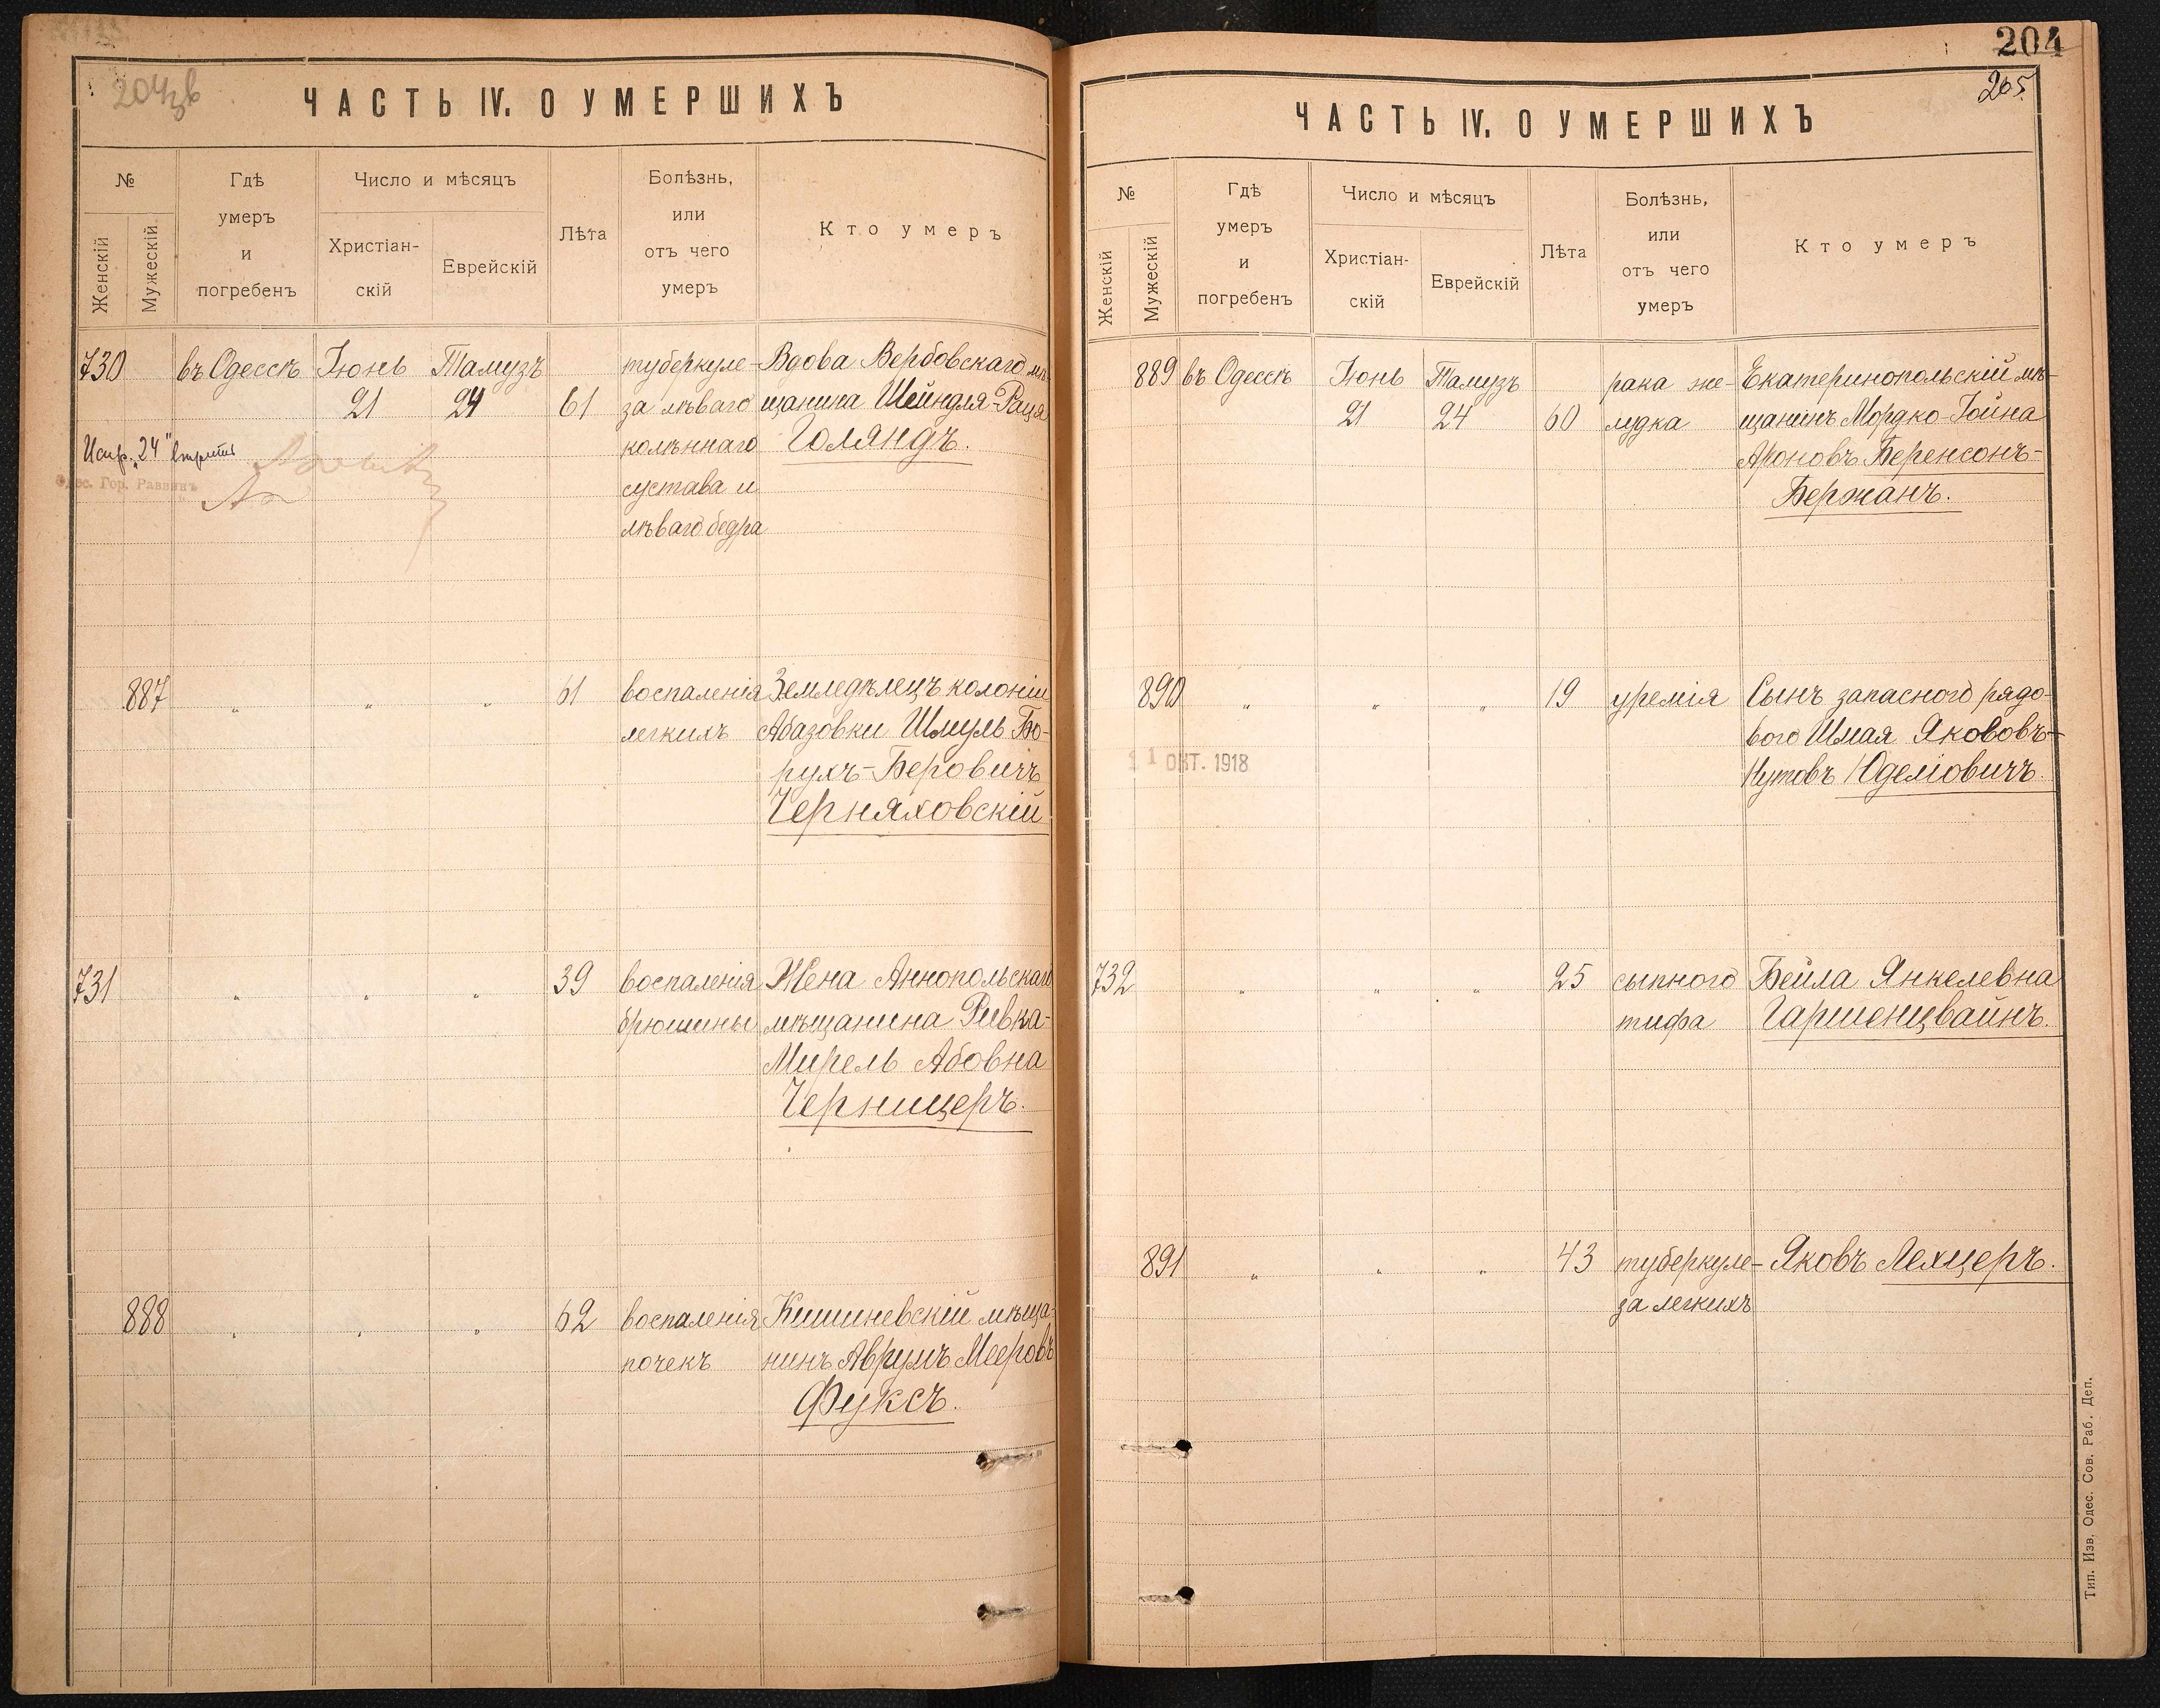 204
205.
204зв
ЧАСТЬ IV. О УМЕРШИХЪ
№
Женскій
Мужескій
Гдѣ
умеръ
и
погребенъ
Число и мѣсяцъ
Христіан-
скій
Еврейскій
Лѣта
Болѣзнь,
или
отъ чего
умеръ
Кто умеръ
730 въ Одессѣ Іюнь Тамузъ туберкуле- Вдова Вербовскаго мѣ-
21 24 61 за лѣваго щанина Шейндля-Рася
колѣннаго Голяндъ.
сустава и
лѣваго бедра
Испр. „24"
Одес. Гор. Раввинъ
887 „ „ „ 61 воспаленія Земледѣлецъ колоніи
легкихъ Абазовки Шмуль Бо-
рухъ-Беровичъ
Черняховскій
731 „ „ „ 39 воспаленія Жена Аннопольскаго
брюшины мѣщанина Ривка-
Мирель Абовна
Черницеръ.
888 „ „ „ 62 воспаленія Кишиневскій мѣща-
почекъ нинъ Аврумъ Мееровъ
Фуксъ.
ЧАСТЬ IV. О УМЕРШИХЪ
№
Женскій
Мужескій
Гдѣ
умеръ
и
погребенъ
Число и мѣсяцъ
Христіан-
скій
Еврейскій
Лѣта
Болѣзнь,
или
отъ чего
умеръ
Кто умеръ
889 въ Одессѣ Іюнь Тамузъ рака же- Екатеринопольскій мѣ-
21 24 60 лудка щанинъ Мордко-Іойна
Ароновъ Беренсонъ-
Бержанъ.
890 „ „ „ 19 уремія Сынъ запаснаго рядо-
вого Шмая Яковъ-
Нутовъ Юделіовичъ.
11 ОКТ. 1918
732 „ „ „ 25 сыпного Бейла Янкелевна
тифа Гаршенцвайнъ.
891 „ „ „ 43 туберкуле- Яковъ Лехцеръ.
за легкихъ
Тип. Изв. Одес. Сов. Раб. Деп.